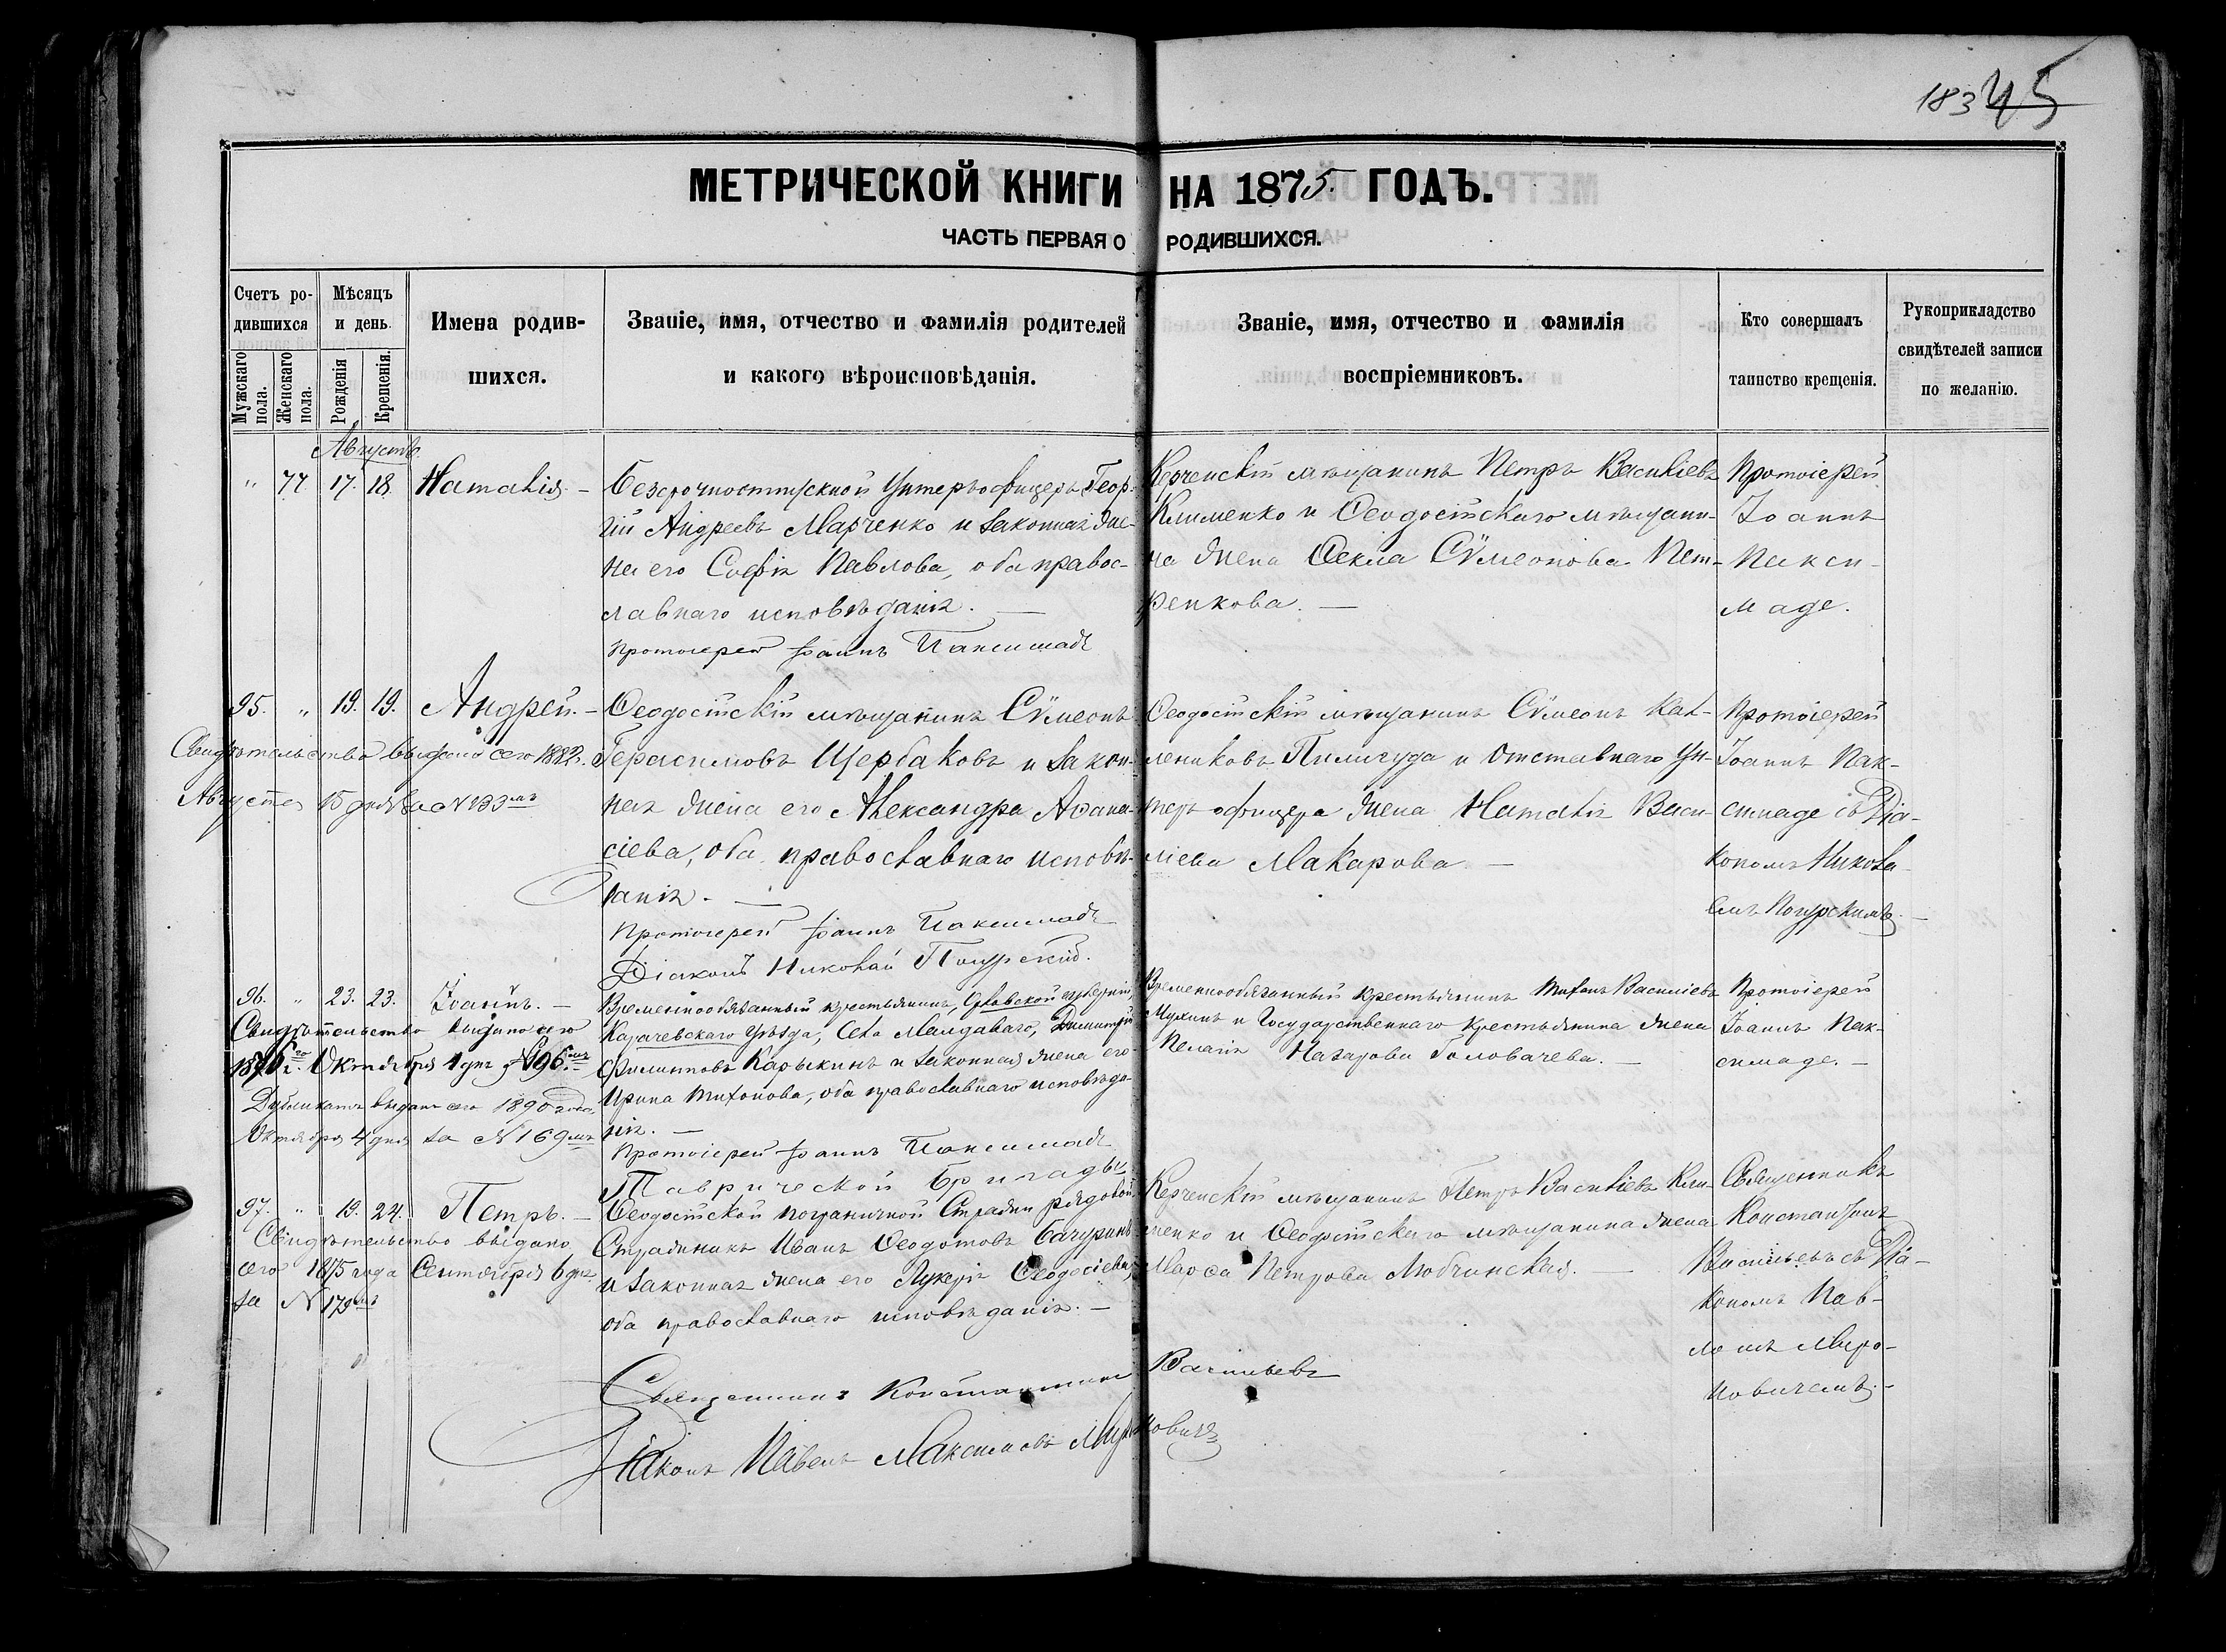 183 45
МЕТРИЧЕСКОЙ КНИГИ НА 1875. ГОДЪ.
ЧАСТЬ ПЕРВАЯ О РОДИВШИХСЯ.
Счетъ ро-
дившихся
Мужскаго
пола.
Женскаго
пола.
Мѣсяцъ
и день.
Рожденія
Крещенія.
Имена родив-
шихся.
Званіе, имя, отчество и фамилія родителей
и какого вѣроисповѣданія.
Званіе, имя, отчество и фамилія
воспріемниковъ.
Кто совершалъ
таинство крещенія.
Рукоприкладство
свидѣтелей записи
по желанію.
Августъ.
" 77 17. 18. Наталія. —
Безсрочноотпускной Унтеръ офицеръ Геор-
гій Андреевъ Марченко и законная же-
на его Софія Павлова, оба правос-
лавнаго исповѣданія. —
Протоіерей Іоаннъ Паксимадъ
Керченскій мѣщанинъ Петръ Василіевъ
Клименко и Ѳеодосійскаго мѣщани-
на жена Ѳекла Сѵмеонова Пет-
ренкова. —
Протоіерей
Іоаннъ
Пакси-
маде.
95. " 19. 19. Андрей. —
Свидѣтельство выдано сего 1882 г.
Августа 15 дня за № 133мъ
Ѳеодосійскій мѣщанинъ Сѵмеонъ
Герасимовъ Щербаковъ и закон-
ная жена его Александра Аѳана-
сіева, оба православнаго исповѣ-
данія. —
Протоіерей Іоаннъ Паксимадъ
Діаконъ Николай Погурскій.
Ѳеодосійскій мѣщанинъ Сѵмеонъ Кал-
лениковъ Пилигуда и отставнаго Ун-
теръ офицера жена Наталія Васи-
ліева Макарова. —
Протоіерей
Іоаннъ Пак-
симаде съ Діа-
кономъ Никола-
емъ Погурскимъ. —
96. " 23. 23. Іоаннъ. —
Свидѣтельство выдано сего
1876 г. Октября 1 дня № 196мъ
Дубликатъ выданъ сего 1890 года
Октября 4 дня за № 169мъ
Временнообязанный крестьянинъ, Орловской губерніи,
Карачевскаго уѣзда, Села Малдаваго, Димитрій
Филипповъ Карыкинъ и законная жена его
Ирина Тихонова, оба православнаго исповѣда-
нія. —
Протоіерей Іоаннъ Паксимадъ
Временнообязанный крестьянинъ Тихонъ Василіевъ
Мухинъ и Государственнаго крестьянина жена
Пелагія Назарова Головачева. —
Протоіерей
Іоаннъ Пак-
симаде. —
97. " 19. 24. Петръ. —
Свидѣтельство выдано
сего 1875 года Сентября 6 дня
за № 179мъ
Таврической бригады
Ѳеодосійской пограничной Стражи рядовой
Стражникъ Иванъ Ѳеодотовъ Бачуринъ
и законная жена его Лукерія Ѳеодосіева,
оба православнаго исповѣданія. —
Керченскій мѣщанинъ Петръ Василіевъ Кли-
менко и Ѳеодосійскаго мѣщанина жена
Марѳа Петрова Любчинская. —
Священникъ
Константинъ
Васильевъ съ Діа-
кономъ Пав-
ломъ Миро-
новичемъ. —
Священникъ Константинъ Васильевъ
Діаконъ Павелъ Максимовъ Мироновичъ